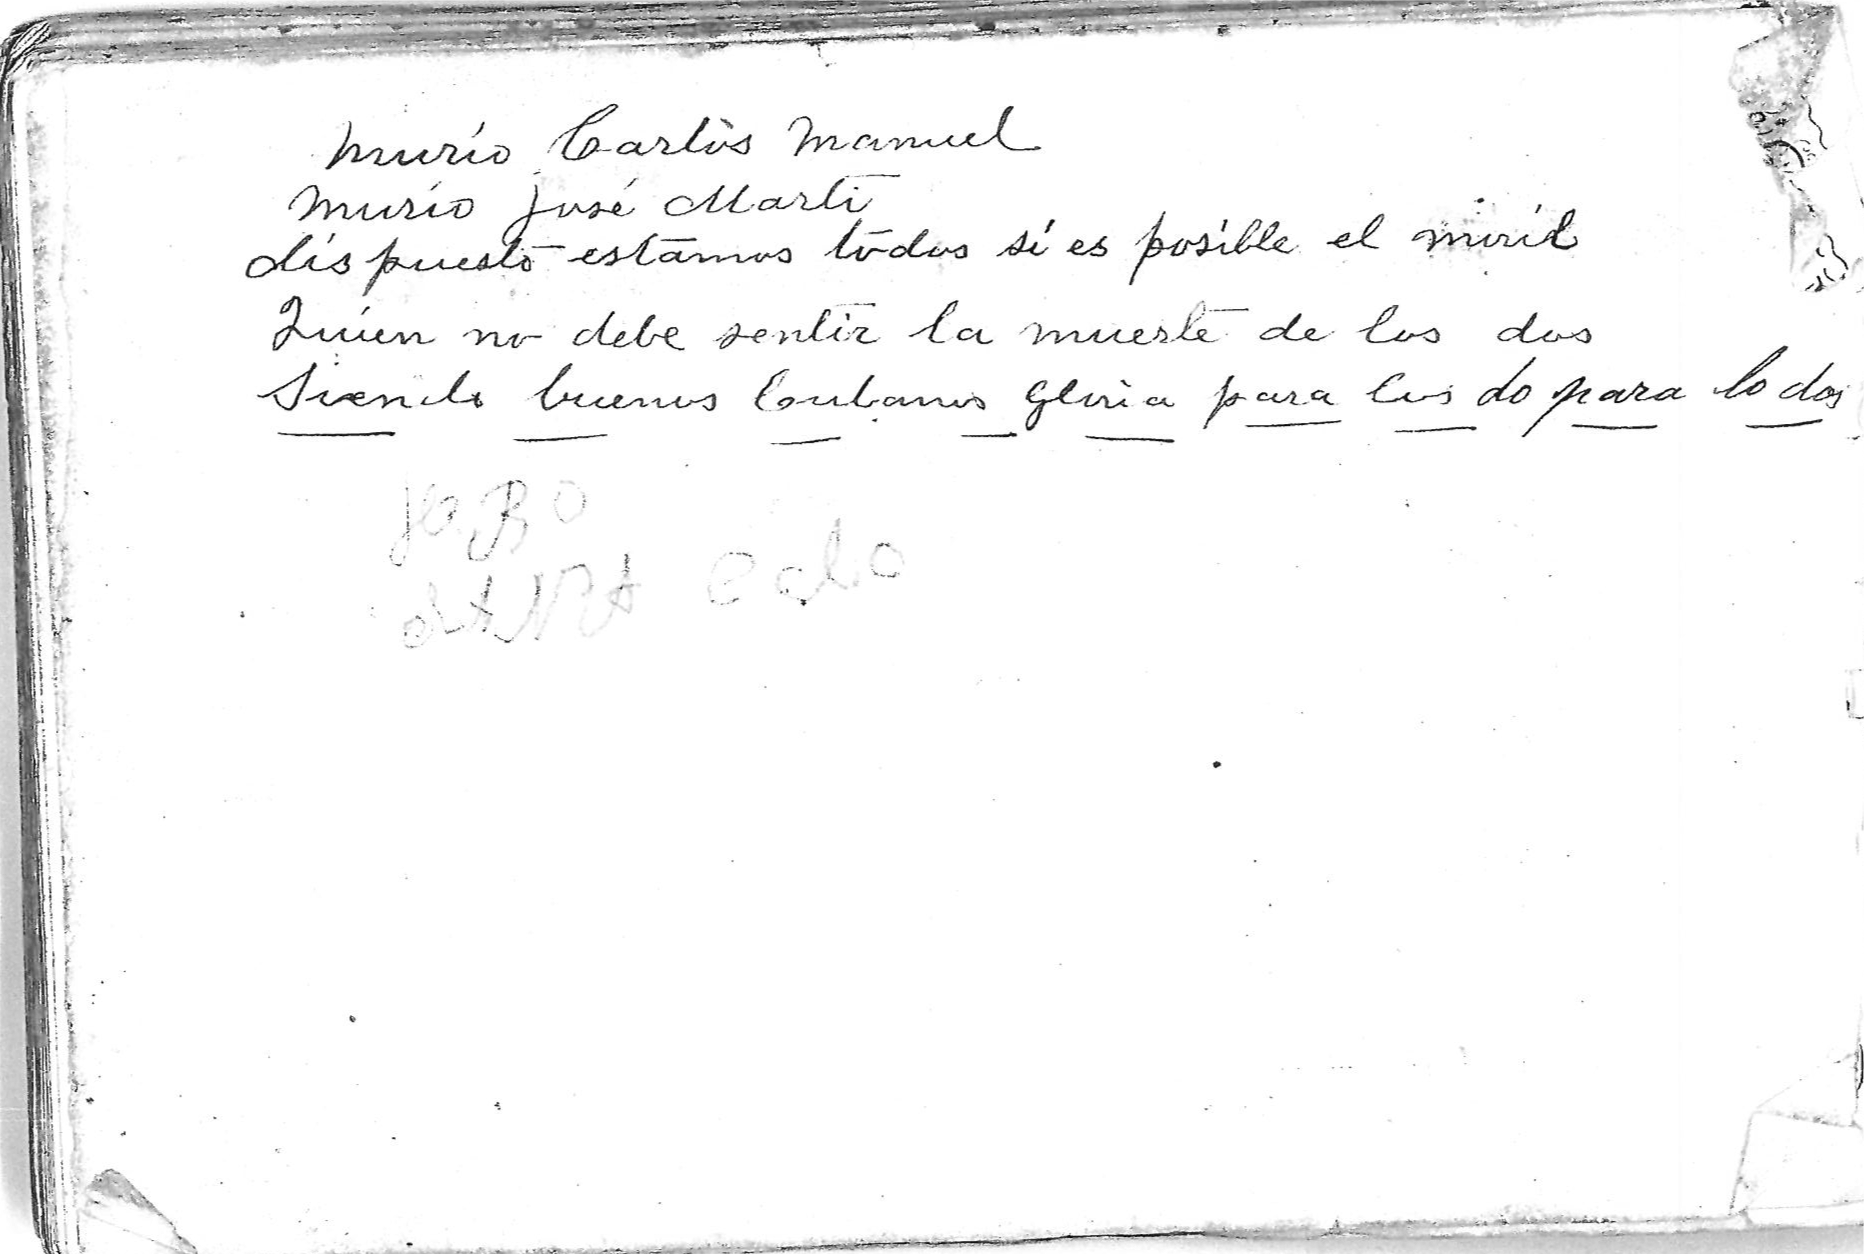 Murio Carlos Manuel
Murio José Marti
dispuesto estamos todos si es posible el morir
Quien no debe sentir la muerte de los dos
Siendo buenos Cubanos Gloria para los do para lo dos